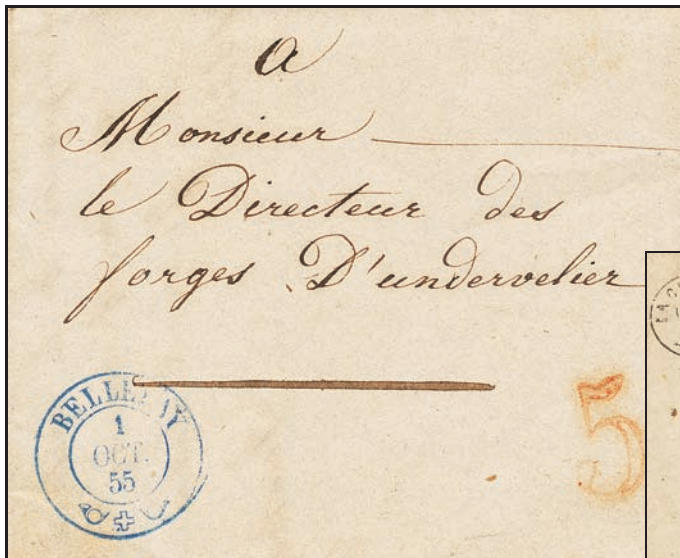 a
Monsieur
le Directeur des
forges D'undervelier
1
OCT.
55
5